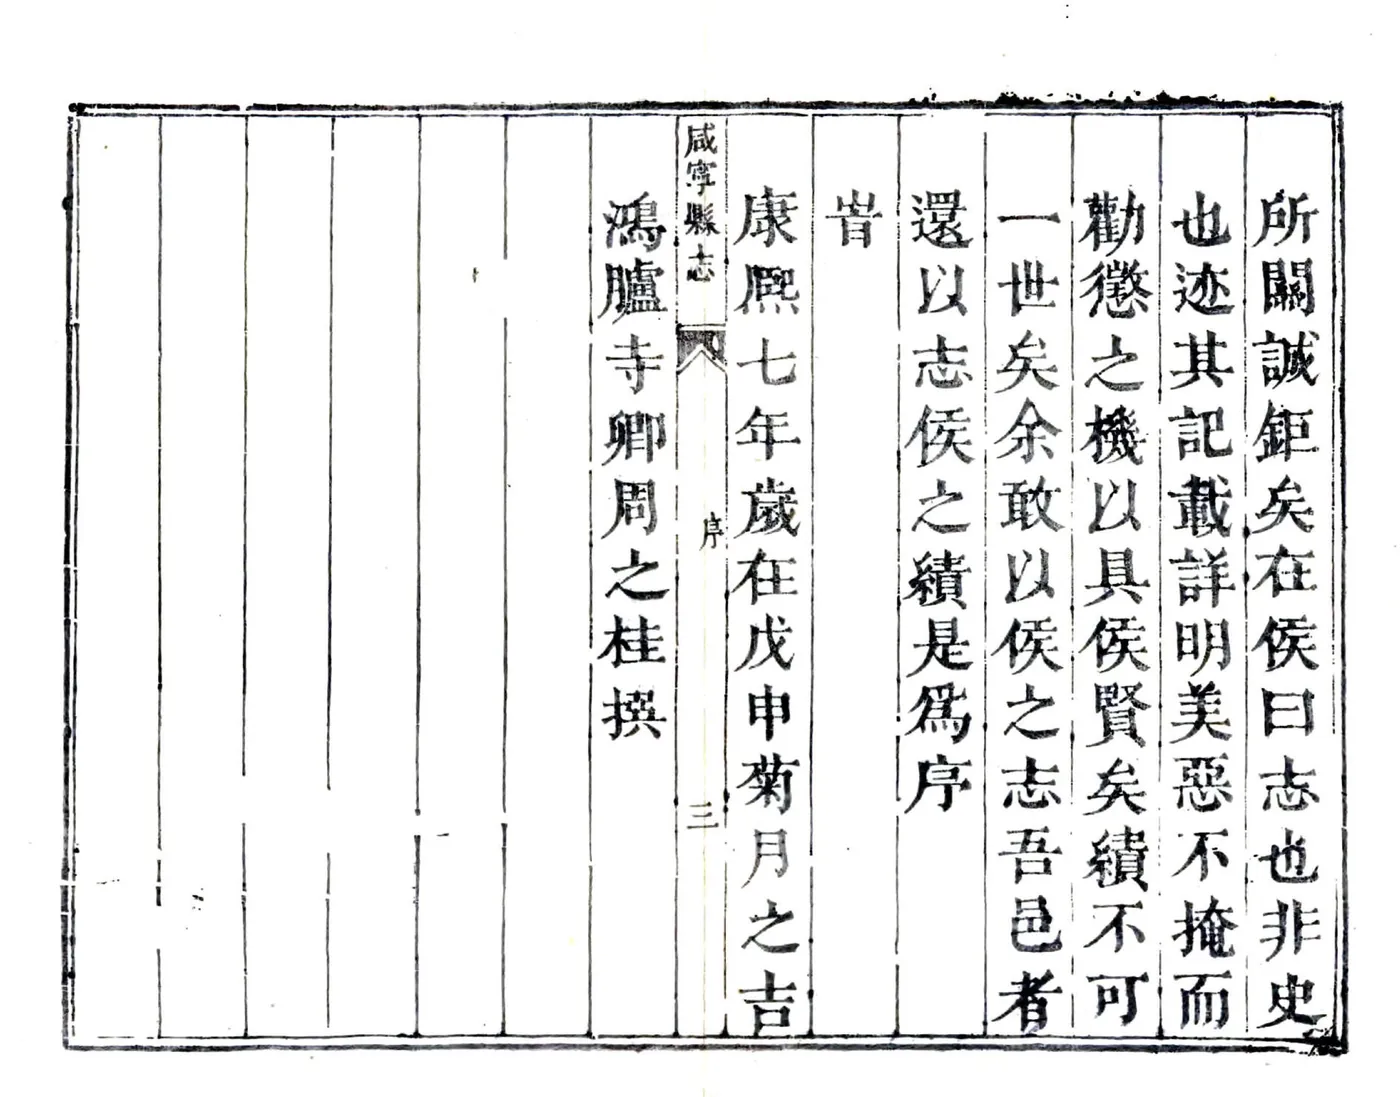 所關誠鉅矣在侯曰志也非史
也迹其記載詳明美惡不掩而
勸懲之機以具侯賢矣績不可
一世矣余敢以侯之志吾邑者
還以志侯之績是爲序
旹
康熈七年歲在戊申菊月之吉
咸寧縣志
序
三
鴻臚寺卿周之桂撰